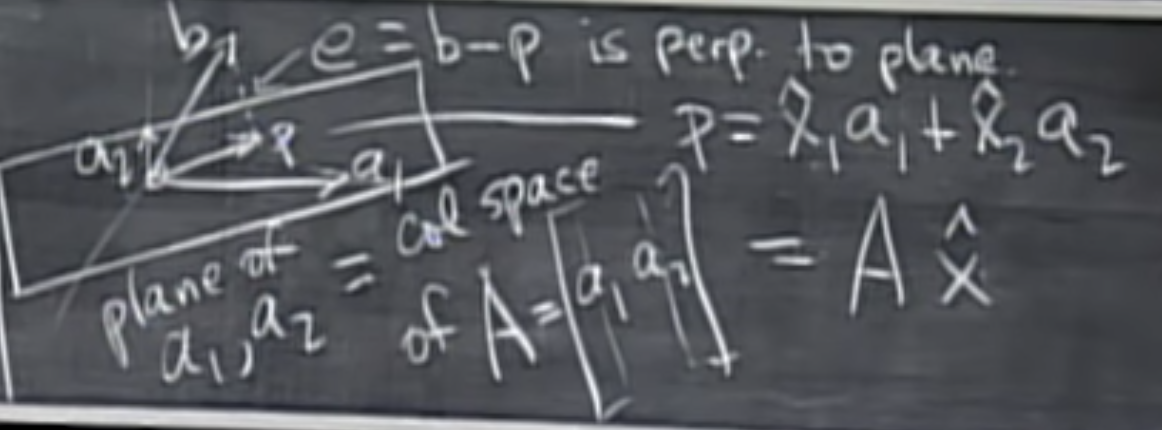 b e = b - p is perp. to plane.
a₂ p a₁ p = x̂₁a₁ + x̂₂a₂
plane of a₁, a₂ = col space of A = [a₁ a₂] = A x̂